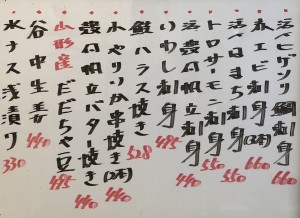 活ヒゲソリ鯛刺身 660
赤エビ刺身(2本) 660
活〆はまち刺身 550
トロサーモン刺身 550
活〆農の刺身 440
いわし刺身 495
鮭ハラス焼き 528
小ヤリイカ串焼き(2本) 440
殻付帆立バター焼き 440
山形産だだちゃ豆 495
谷中生姜 440
水ナス浅漬り 330